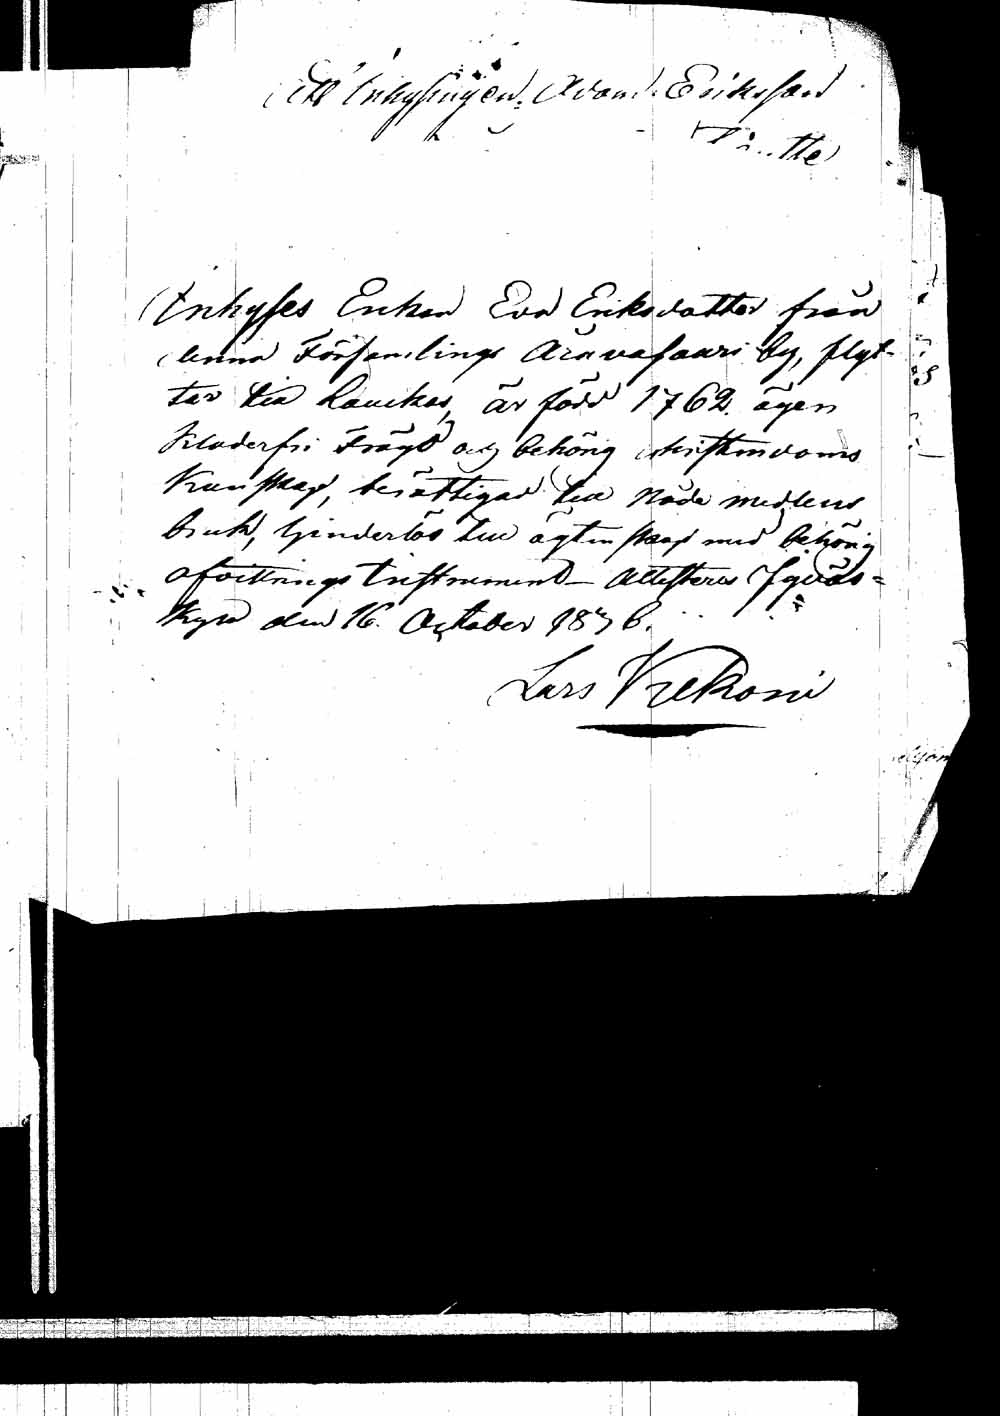 Att Inhysingen Adam Eriksson
Inhyses Enkan Eva Eriksdotter från
denna Församlings Ärävasaari by, flyt-
tar till Laukas, är född 1762. ägen
kladerfri Frägd och behörig christendoms
Kunskap, berättigad till Nåde medlens
bruk, hinderlös till ägtenskap med behörig
afvittrings Instrument Attesteras Jyväs=
kylä den 16 October 1836.
Lars Krekoni